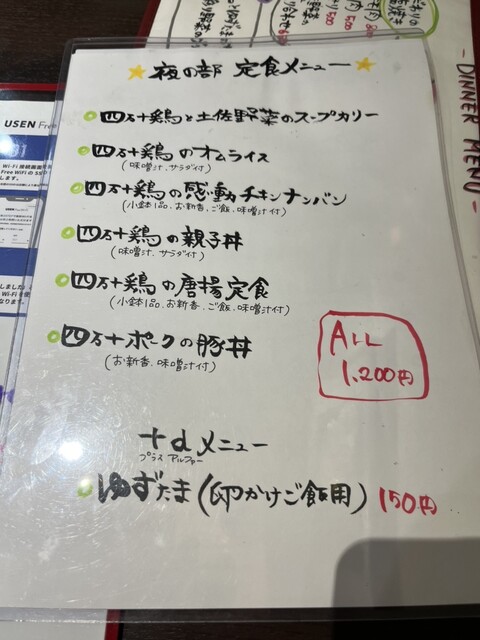 夜の部 定食メニュー
四万十鶏と土佐野菜のスープカリー
四万十鶏のオムライス
(味噌汁、サラダ付)
四万十鶏の感動チキンナンバン
(小鉢1品、お新香、ご飯、味噌汁付)
四万十鶏の親子丼
(味噌汁、サラダ付)
四万十鶏の唐揚定食
(小鉢1品、お新香、ご飯、味噌汁付)
四万十ポークの豚丼
(お新香、味噌汁付)
ALL
1,200円
+αメニュー
プラス アルファー
ゆずたま(卵かけご飯用) 150円
- DINNER MENU -
USEN Free